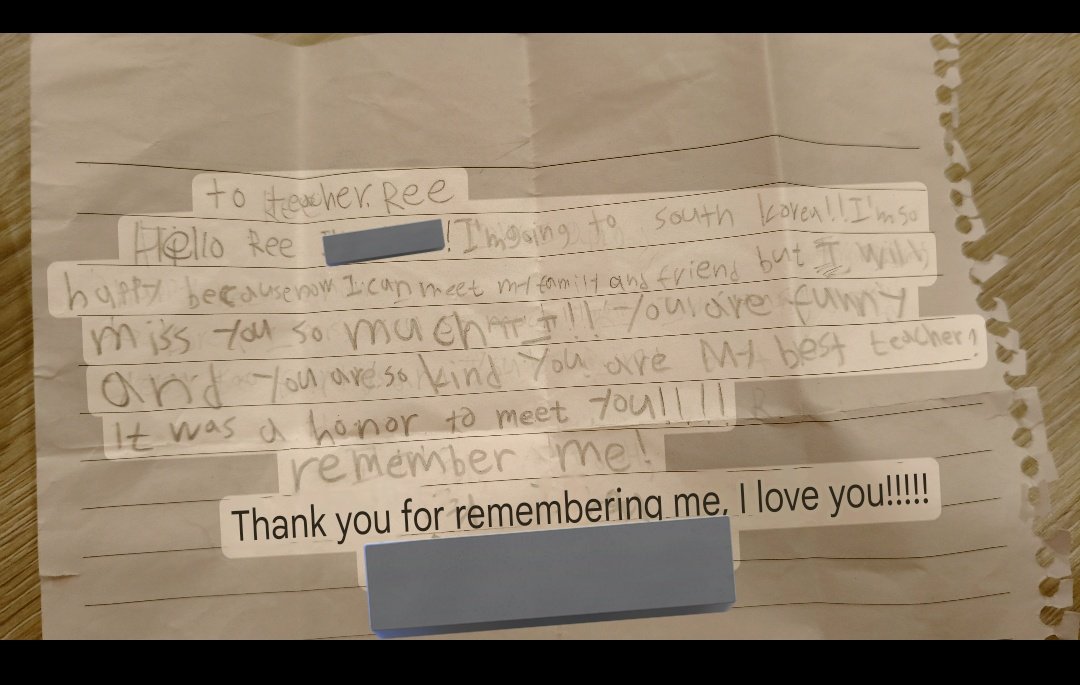 to teacher. Ree
Hello Ree ! I'm going to south korea!! I'm so
happy because now I can meet my family and friend but I will
miss you so much!!! You are funny
and you are so kind you are My best teacher!
It was a honor to meet you!!!!
remember me!
Thank you for remembering me, I love you!!!!!